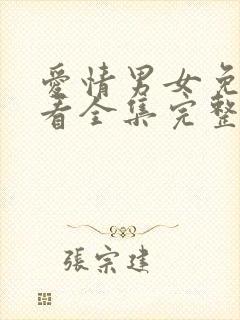 愛情男女免
看全集完整
張宗建